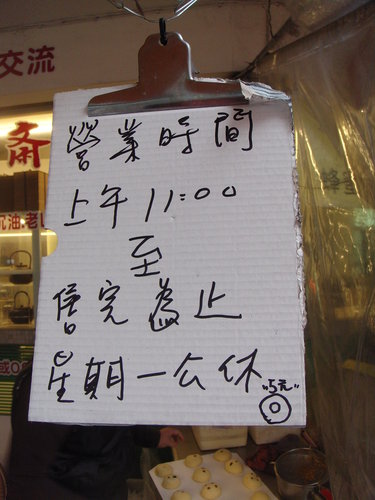 交流
斋
營業時間
上午11:00
至
售完為止
星期一公休
"5元"
沉油.老
蜂蜜